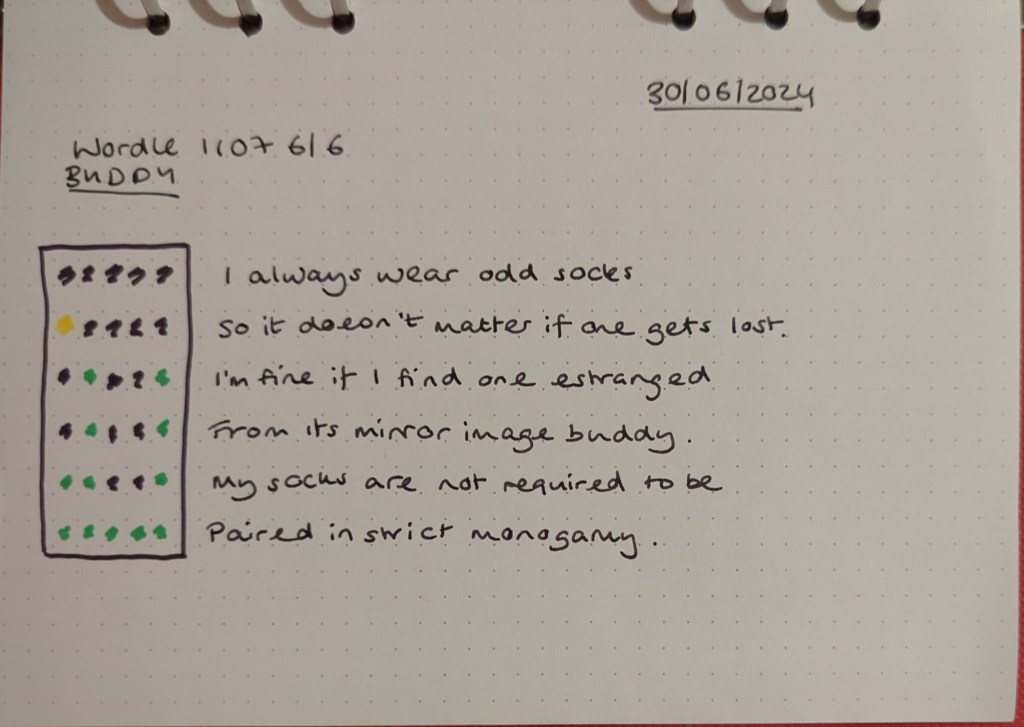 30/06/2024
Wordle 1107 6/6
BUDDY
I always wear odd socks
So it doesn't matter if one gets lost.
I'm fine if I find one estranged
From its mirror image buddy.
My socks are not required to be
Paired in strict monogamy.